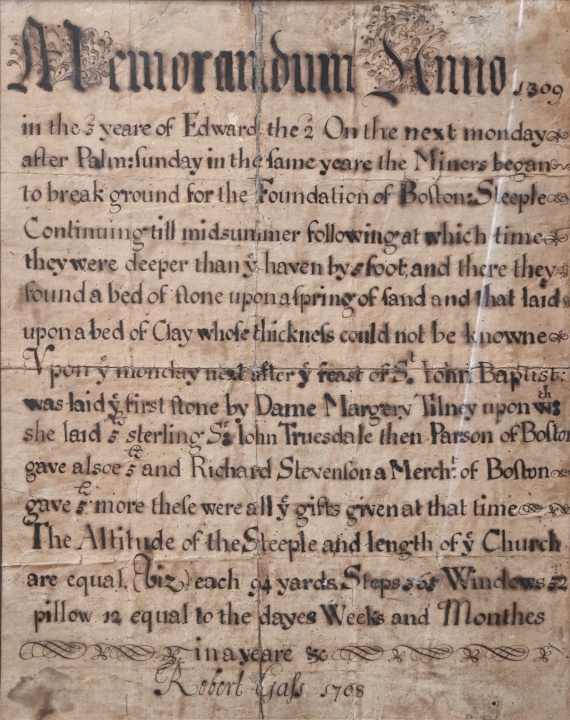 Memorandum Anno 1309
in the 3 yeare of Edward the 2 On the next monday
after Palm:ſunday in the ſame yeare the Miners began
to break ground for the Foundation of Boſton:Steeple
Continuing till midsummer following at which time
they were deeper than yͤ haven by 5 foot, and there they
found a bed of ſtone upon a ſpring of ſand and that laid
upon a bed of Clay whoſe thickneſs could not be knowne
Vpon yͤ monday next after yͤ feast of Sᵗ. Iohn Baptist:
was laid yͤ first ſtone by Dame Margery Tilney upon wᵗʰ
she laid 5ˡ sterling Sʳ: Iohn Truesdale then Parson of Boſton
gave alsoe 5ˡ and Richard Stevenſon a Merchᵗ: of Boſton
gave 5ˡ: more theſe were all yͤ gifts given at that time
The Altitude of the Steeple and length of yͤ Church
are equal, (viz) each 94 yards. Steps 365 Windows 52
pillow 12 equal to the dayes Weeks and Monthes
in a yeare &c
Robert Gaſs 1708